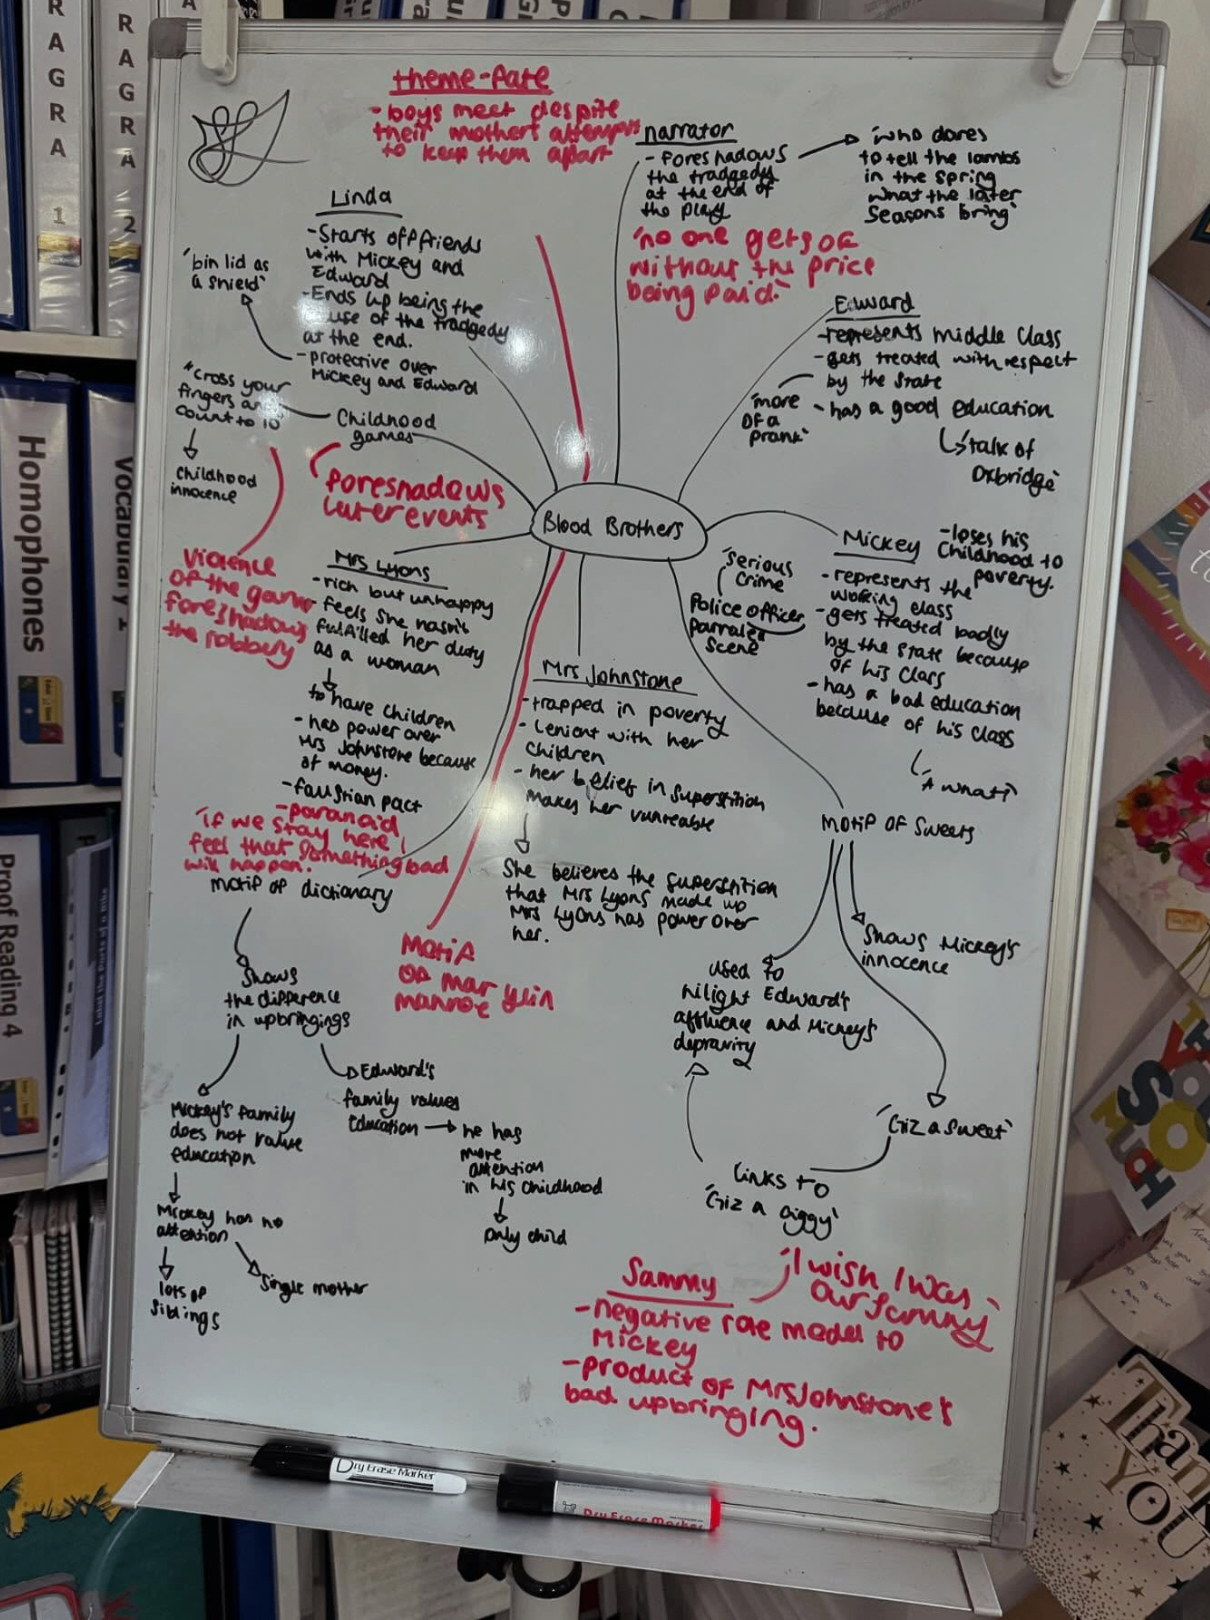 theme-fate
- boys meet despite
their mothers attempts
to keep them apart
narrator
- foreshadows
the tradgedy
at the end of
the play
'who dares
to tell the lambs
in the spring
what the later
seasons bring'
'no one gets of
without the price
being paid.'
Linda
- Starts off friends
with Mickey and
Edward
- Ends up being the
cause of the tradgedy
at the end.
- protective over
Mickey and Edward
'bin lid as
a shield'
"cross your
fingers and
count to 10"
Childhood
innocence
Childhood
games
foreshadows
later events
Violence
of the game
foreshadows
the robbery
Edward
- represents middle class
- gets treated with respect
by the state
'more
of a
prank'
- has a good education
'talk of
Oxbridge'
Blood Brothers
Mickey
- loses his
Childhood to
poverty.
- represents the
working class
- gets treated badly
by the state because
of his class
- has a bad education
because of his class
'A what?'
'serious
crime
Police officer
parralel
scene
Mrs Lyons
- rich but unhappy
- feels she hasn't
fulfilled her duty
as a woman
to have children
- has power over
Mrs Johnstone because
of money.
- faustian pact
- paranoid
'if we stay here I
feel that something bad
will happen.'
Mrs Johnstone
- trapped in poverty
- Lenient with her
children
- her belief in superstition
makes her vunreable
She believes the superstition
that Mrs Lyons made up
Mrs Lyons has power over
her.
motif of dictionary
Shows
the difference
in upbringings
Mickey's family
does not value
education
Mickey has no
attention
lots of
siblings
Single mother
Edward's
family values
Education
he has
more
attention
in his childhood
only child
Motif
of marylin
manroe
Motif of Sweets
Shows Mickey's
innocence
used to
hilight Edward's
affluence and Mickey's
depravity
'Giz a sweet'
Links to
'Giz a ciggy'
Sammy
'I wish I was
our Sammy'
- negative role model to
Mickey
- product of Mrs Johnstone's
bad upbringing.
Dry Erase Marker
Dry Erase Marker
RAGRA
1
RAGRA
2
Homophones
Vocabulary 1
Proof Reading 4
YOU
SO
MUCH
Thank
YOU